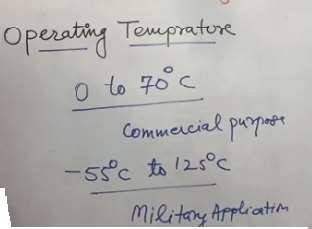 Operating Temprature
0 to 70°C
Commercial purpose
-55°C to 125°C
Military Application